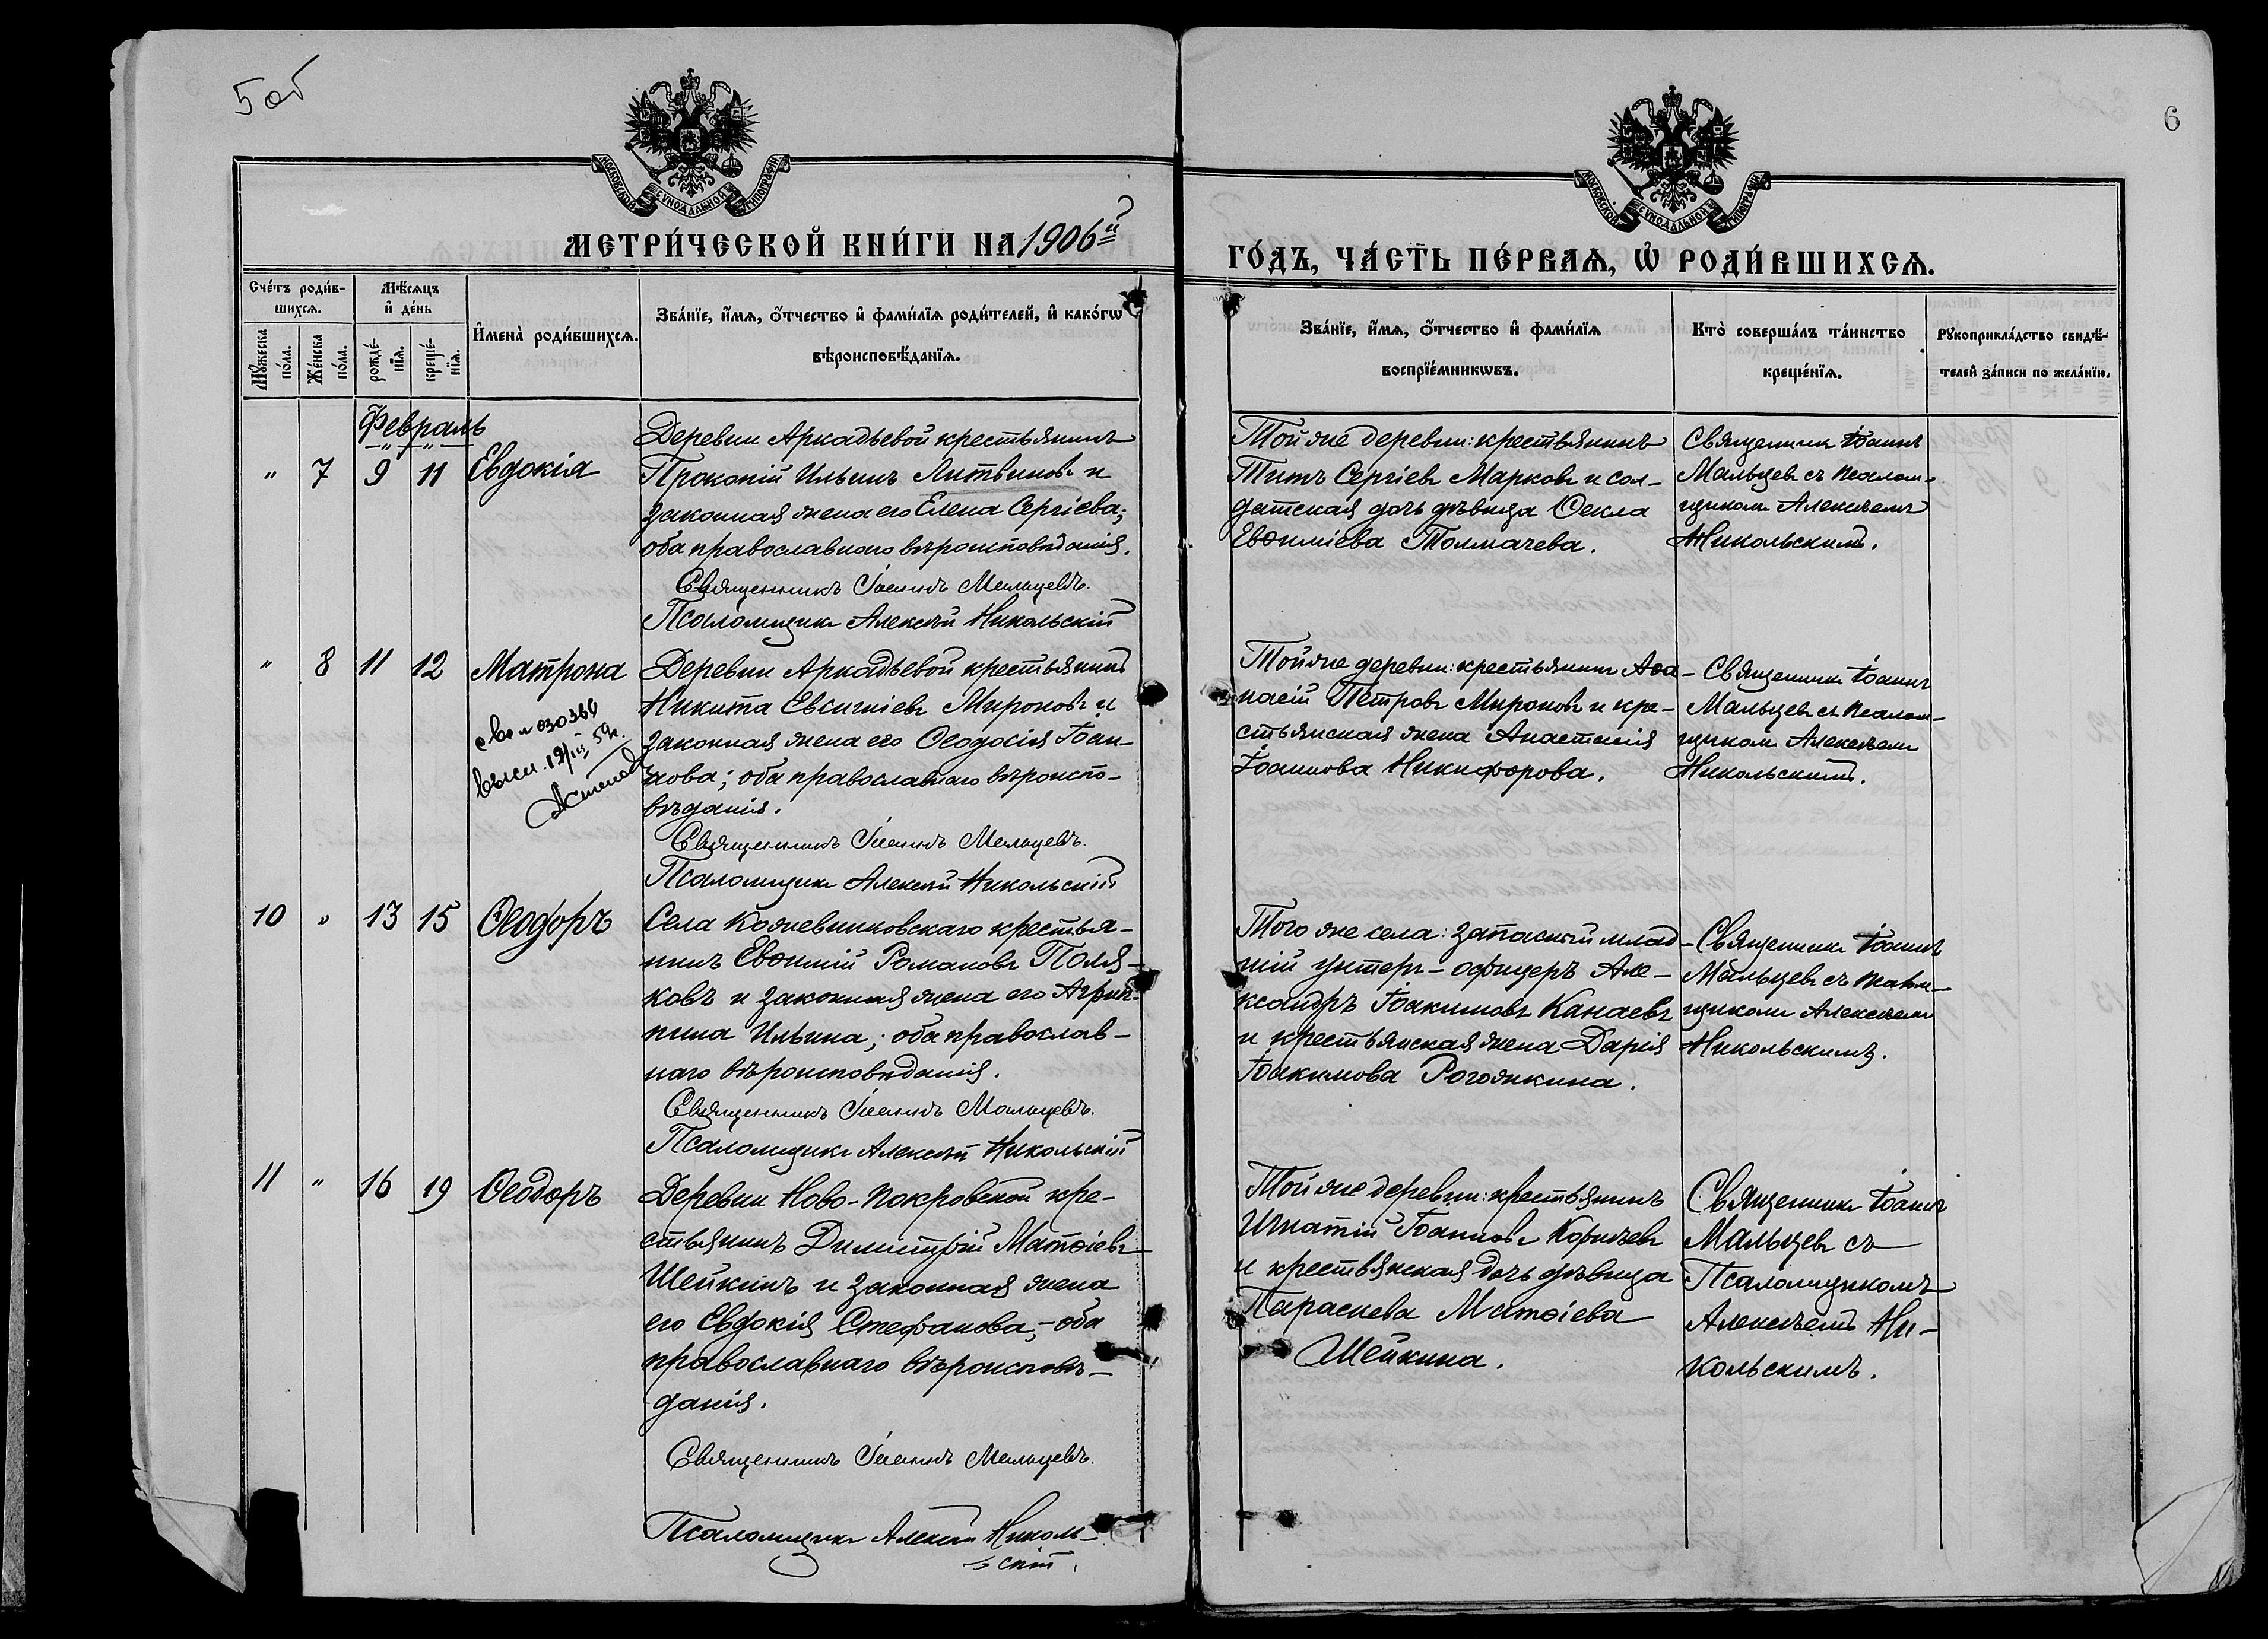 5 об
6
МОСКОВСКОЙ СѴНОДАЛЬНОЙ ТИПОГРАФІИ
МОСКОВСКОЙ СѴНОДАЛЬНОЙ ТИПОГРАФІИ
МЕТРИ́ЧЕСКОЙ КНИ́ГИ НА 1906й
ГО́ДЪ, ЧА́СТЬ ПЕ́РВАѦ, Ѡ҆ РОДИ́ВШИХСѦ.
Сче́тъ роди́в-
шихсѧ.
Мѣ́сѧцъ
и҆ де́нь
Мꙋ́жеска
по́ла.
Же́нска
по́ла.
рожде́-
нїѧ.
креще́-
нїѧ.
И҆мена̀ роди́вшихсѧ.
Зва́нїе, и҆́мѧ, ѻ҆́тчество и҆ фами́лїѧ роди́телей, и҆ како́гѡ
вѣроисповѣ́данїѧ.
Зва́нїе, и҆́мѧ, ѻ҆́тчество и҆ фами́лїѧ
воспрїе́мникѡвъ.
Кто̀ соверша́лъ та́инство
креще́нїѧ.
Рꙋкоприкла́дство свидѣ́-
телей за́писи по жела́нїю.
Февраль
" 7 9 11 Евдокія
Деревни Аркадьевой крестьянинъ
Прокопій Ильинъ Литвиновъ и
законная жена его Елена Сергіева;
оба православнаго вѣроисповѣданія.
Священникъ Іоаннъ Мальцевъ.
Псаломщикъ Алексѣй Никольскій
Той же деревни: крестьянинъ
Титъ Сергіевъ Марковъ и сол-
датская дочь дѣвица Ѳекла
Евѳиміева Толмачева.
Священникъ Іоаннъ
Мальцевъ съ псалом-
щикомъ Алексѣемъ
Никольскимъ.
" 8 11 12 Матрона
Деревни Аркадьевой крестьянинъ
Никита Евсигніевъ Мироновъ и
законная жена его Ѳеодосія Іоан-
нова; оба православнаго вѣроиспо-
вѣданія.
Священникъ Іоаннъ Мальцевъ.
Псаломщикъ Алексѣй Никольскій
Той же деревни: крестьянинъ Аѳа-
насій Петровъ Мироновъ и кре-
стьянская жена Анастасія
Іоаннова Никифорова.
Священникъ Іоаннъ
Мальцевъ съ псалом-
щикомъ Алексѣемъ
Никольскимъ.
10 " 13 15 Ѳеодоръ
Села Кожевниковскаго крестья-
нинъ Евѳимій Романовъ Поля-
ковъ и законная жена его Агрип-
пина Ильина; оба православ-
наго вѣроисповѣданія.
Священникъ Іоаннъ Мальцевъ.
Псаломщикъ Алексѣй Никольскій
Того же села: запасный млад-
шій унтеръ-офицеръ Але-
ксандръ Іоакимовъ Канаевъ
и крестьянская жена Дарія
Іоакимова Рогожкина.
Священникъ Іоаннъ
Мальцевъ съ псалом-
щикомъ Алексѣемъ
Никольскимъ.
11 " 16 19 Ѳеодоръ
Деревни Ново-Покровской кре-
стьянинъ Димитрій Матѳіевъ
Шейкинъ и законная жена
его Евдокія Стефанова,- оба
православнаго вѣроисповѣ-
данія.
Священникъ Іоаннъ Мальцевъ.
Псаломщикъ Алексѣй Николь-
скій.
Той же деревни: крестьянинъ
Игнатій Іоанновъ
и крестьянская дочь дѣвица
Параскева Матѳіева
Шейкина.
Священникъ Іоаннъ
Мальцевъ съ
Псаломщикомъ
Алексѣемъ Ни-
кольскимъ.